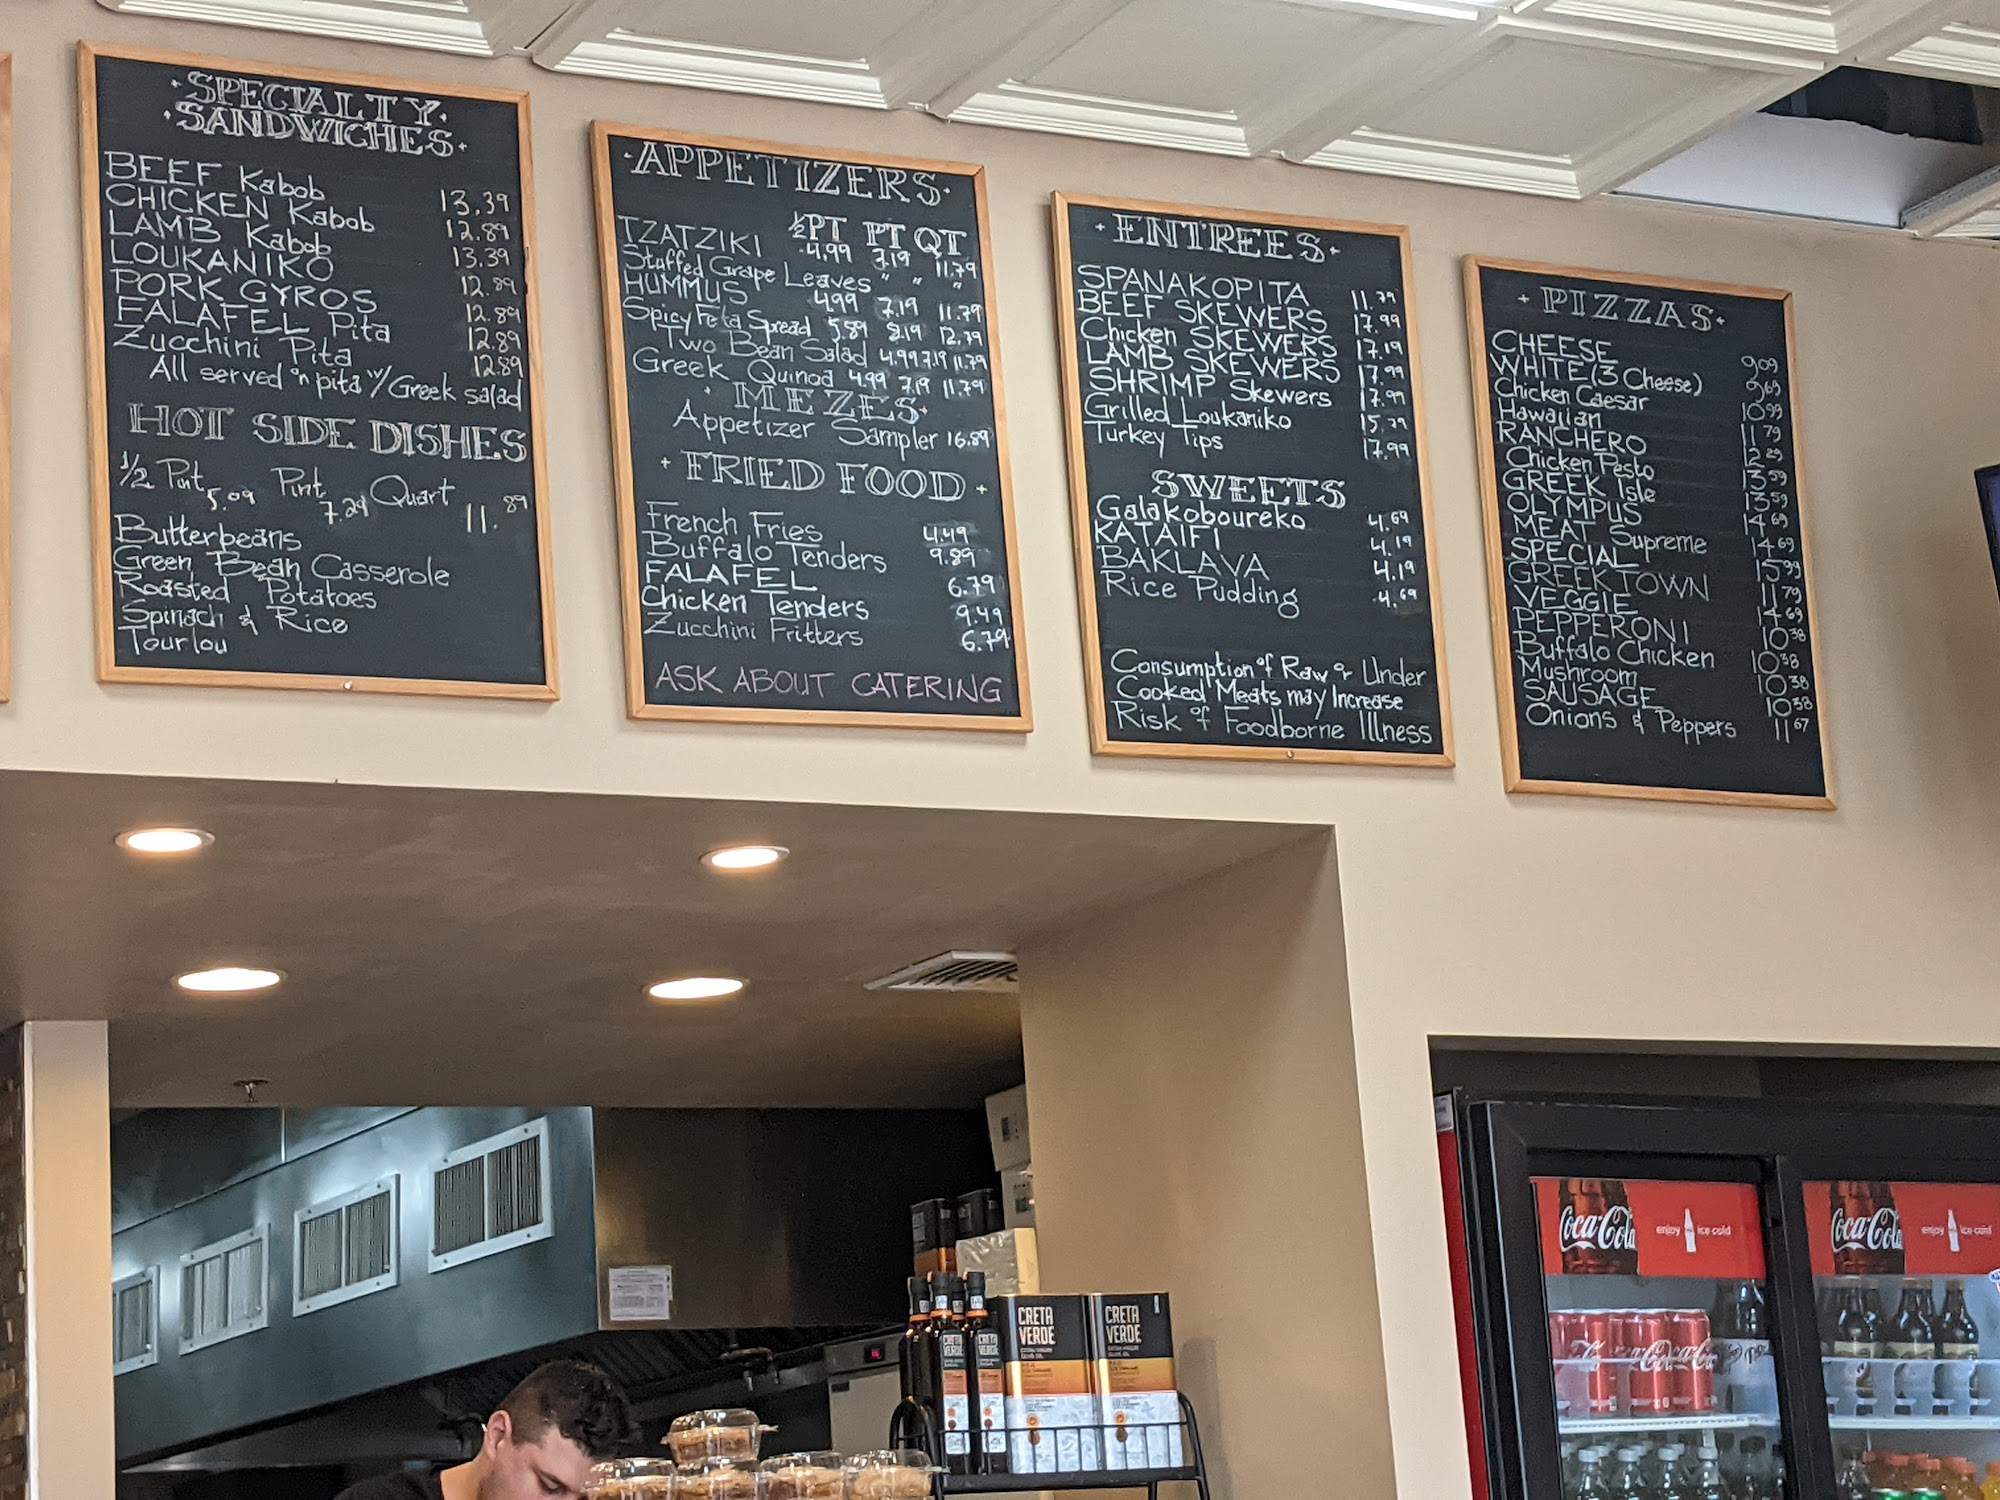 SPECIALTY
SANDWICHES
BEEF Kabob 13.39
CHICKEN Kabob 12.89
LAMB Kabob 13.39
LOUKANIKO 12.89
PORK GYROS 12.89
FALAFEL Pita 12.89
Zucchini Pita 12.89
All served on pita w/Greek salad
HOT SIDE DISHES
1/2 Pint 5.09 Pint 7.29 Quart 11.89
Butterbeans
Green Bean Casserole
Roasted Potatoes
Spinach & Rice
Tourlou
APPETIZERS
½PT PT QT
TZATZIKI 4.99 7.19 11.79
Stuffed Grape Leaves " " "
HUMMUS 4.99 7.19 11.79
Spicy Feta Spread 5.89 8.19 12.79
Two Bean Salad 4.99 7.19 11.79
Greek Quinoa 4.99 7.19 11.79
MEZES
Appetizer Sampler 16.89
FRIED FOOD
French Fries 4.49
Buffalo Tenders 9.89
FALAFEL 6.79
Chicken Tenders 9.49
Zucchini Fritters 6.79
ASK ABOUT CATERING
ENTREES
SPANAKOPITA 11.79
BEEF SKEWERS 17.99
Chicken SKEWERS 17.19
LAMB SKEWERS 17.99
SHRIMP Skewers 17.99
Grilled Loukaniko 15.79
Turkey Tips 17.99
SWEETS
Galakoboureko 4.69
KATAIFI 4.19
BAKLAVA 4.19
Rice Pudding 4.69
Consumption of Raw or Under
Cooked Meats may Increase
Risk of Foodborne Illness
PIZZAS
CHEESE 9.09
WHITE (3 Cheese) 9.69
Chicken Caesar 10.99
Hawaiian 11.79
RANCHERO 12.29
Chicken Pesto 13.59
GREEK Isle 13.59
OLYMPUS 14.69
MEAT Supreme 14.69
SPECIAL 15.99
GREEKTOWN 11.79
VEGGIE 14.69
PEPPERONI 10.38
Buffalo Chicken 10.38
Mushroom 10.38
SAUSAGE 10.38
Onions & Peppers 11.67
Coca-Cola enjoy ice cold
Coca-Cola enjoy ice cold
CRETA VERDE
CRETA VERDE
CRETA
VERDE
EXTRA VIRGIN
OLIVE OIL
CRETA
VERDE
Coca-Cola